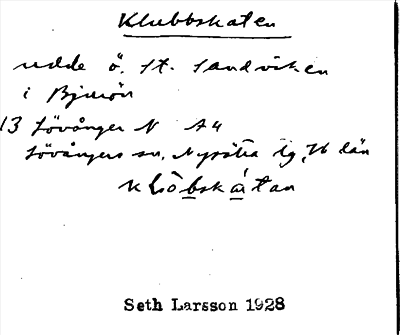 Klubbskaten
udde ö. St. Sandviken
i Bjurön
13 Lövånger N A4
Lövångers sn, Nysätra tg, Vb län
Seth Larsson 1928